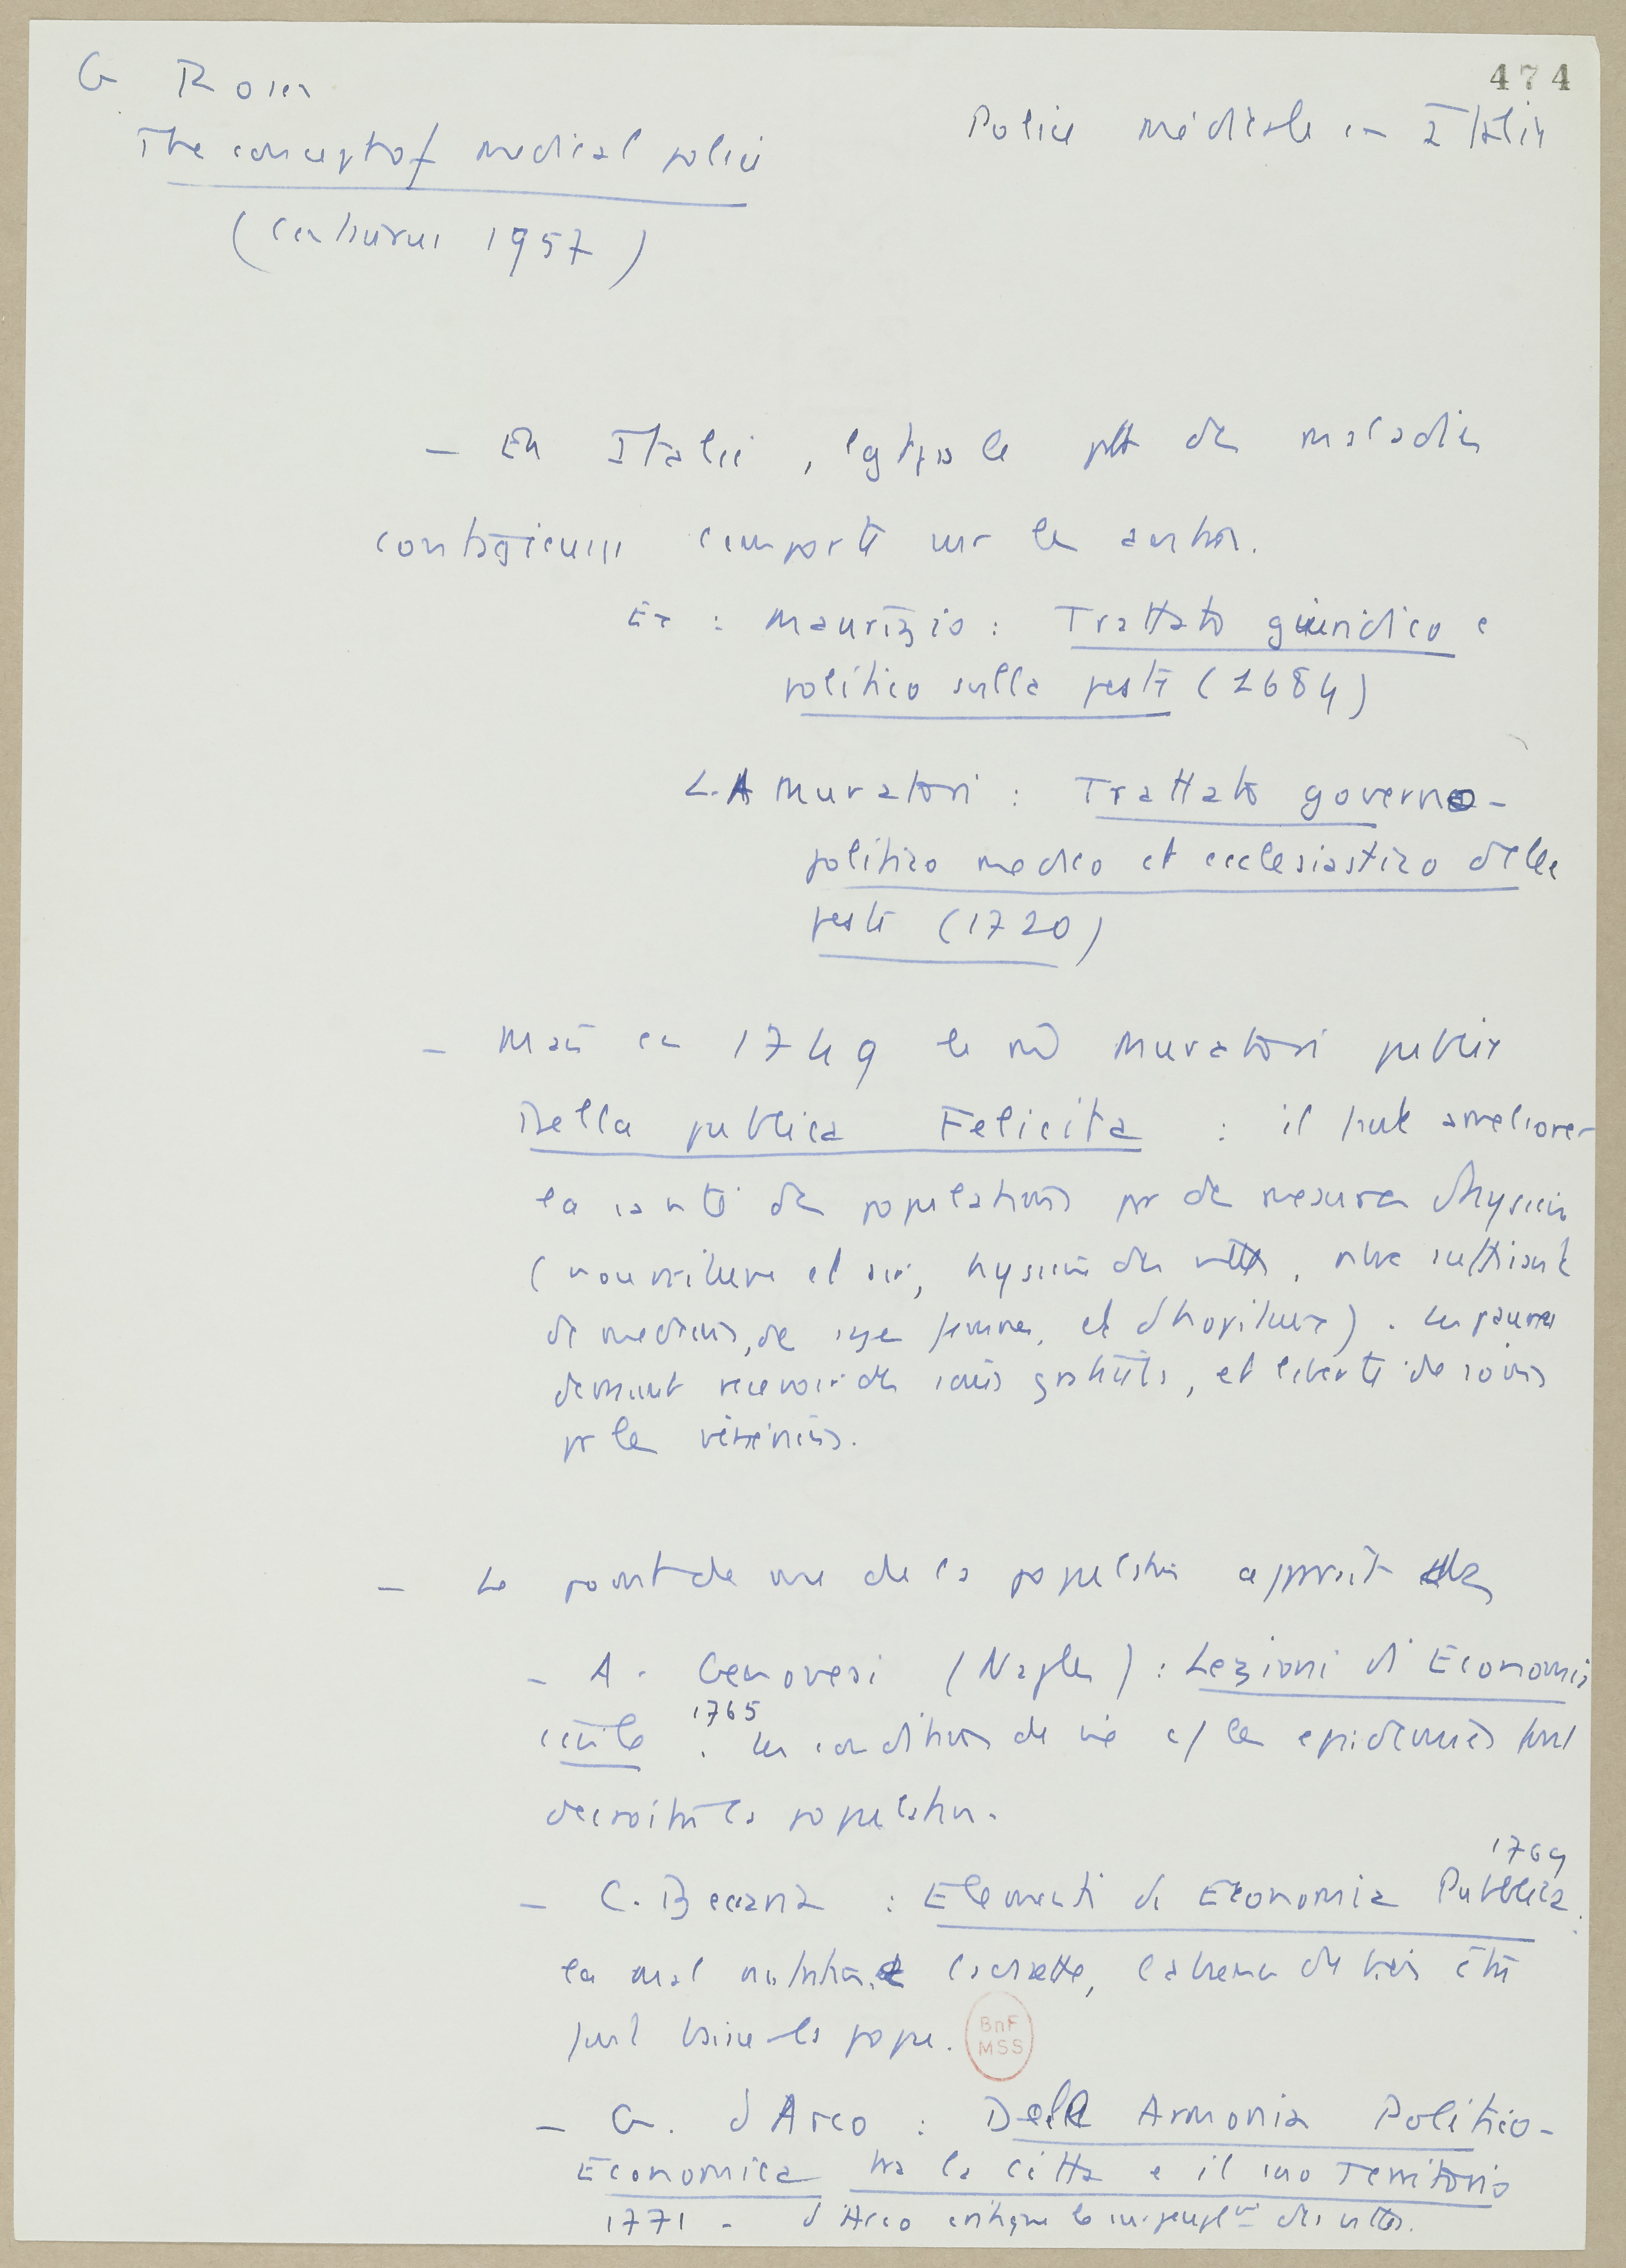 G Rosen
474
Police médicale en Italie
The concept of medical police
(Centaurus 1957)
– En Italie, lgtps le pb des maladies
contagieuses l'emporte sur les autres.
Ex : Maurizio : Trattato giuridico e
politico sulla peste (1684)
L.A Muratori : Trattato governo-
politico medico et ecclesiastico delle
peste (1720)
– Mais en 1749 le mê Muratori publie
Della publica Felicita : il faut ameliorer
la santé des populations par des mesures d'hygiene
(nourriture et air, hygiene des villes, nbre suffisant
de medecins, de sages femmes, et d'hopitaux). Les pauvres
devraient recevoir des soins gratuits, et liberté de soins
pr les
– Le point de vue de la population apparait
– A. Genovesi (Naples) : Lezioni di Economia
civile 1765. Les conditions de vie et les epidemies font
decroitre la population.
– C. Beccaria : Elementi di Economia Pubblica 1769 :
la mal nutrition, la disette,
font baisser la popu.
BnF
MSS
– G. d'Arco : Dell Armonia Politico-
Economica tra la citta e il suo Territorio
1771 – d'Arco critique le surpeuplt des villes.